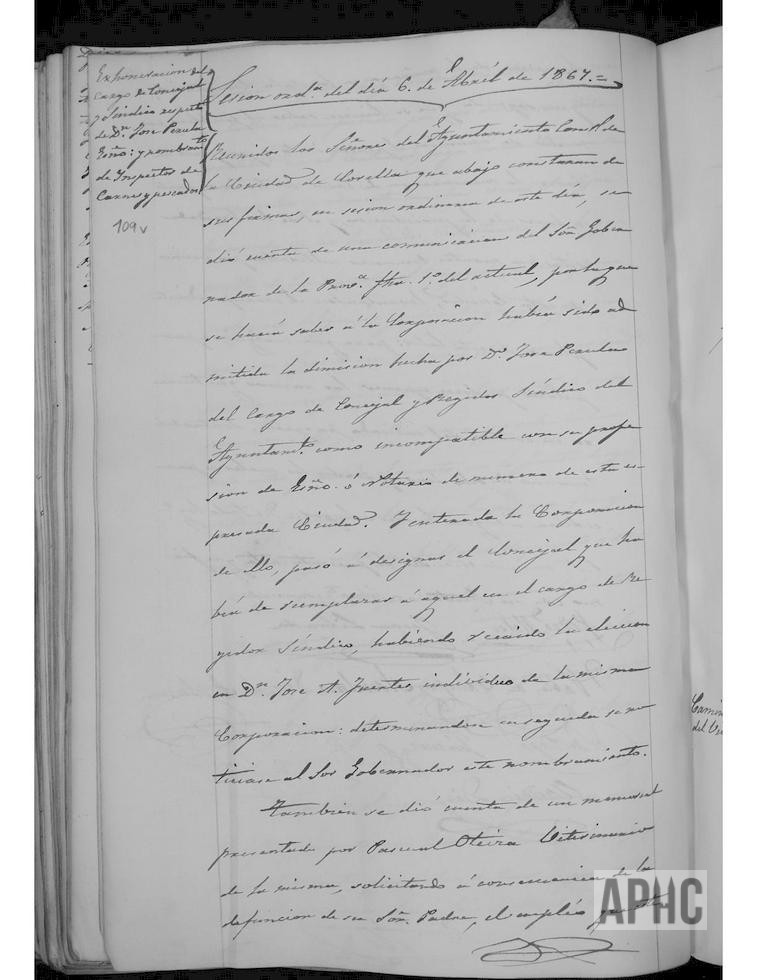 Exhoneracion del
cargo de Concejal
y Sindico respecto
de Dn. Jose Perula
Esño: y nombramto
de Inspector de
Carnes y pescados
109v
Sesion orda. del dia 6. de Abril de 1867.=
Reunidos los Señores del Ayuntamiento Constl. de
la Ciudad de Corella que abajo constaran de
sus firmas, en sesion ordinaria de este dia, se
dió cuenta de una comunicacion del Sõr. Gober
nador de la Prova. fha. 1º. del actual, por la que
se hacia saber á la Corporacion habia sido ad
mitida la dimision hecha por Dn. Jose Perula
del Cargo de Concejal y Regidor Síndico del
Ayuntamto. como incompatible con su profe
sion de Esño. ó Notario de numero de esta es-
presada Ciudad. Y enterada la Corporacion
de ello, pasó á designar el Concejal que ha
bia de reemplazar á aquel en el cargo de Re
gidor Síndico, habiendo recaido la eleccion
en Dn. Jose A. Fuentes individuo de la misma
Corporacion: determinandose en seguida se no
ticiase al Sor Gobernador este nombramiento.
Tambien se dió cuenta de un memorial
presentado por Pascual Oteiza Veterinario
de la misma, solicitando á consecuencia de la
defuncion de su Sõr. Padre, el empleo que este
Camin
del
APHC